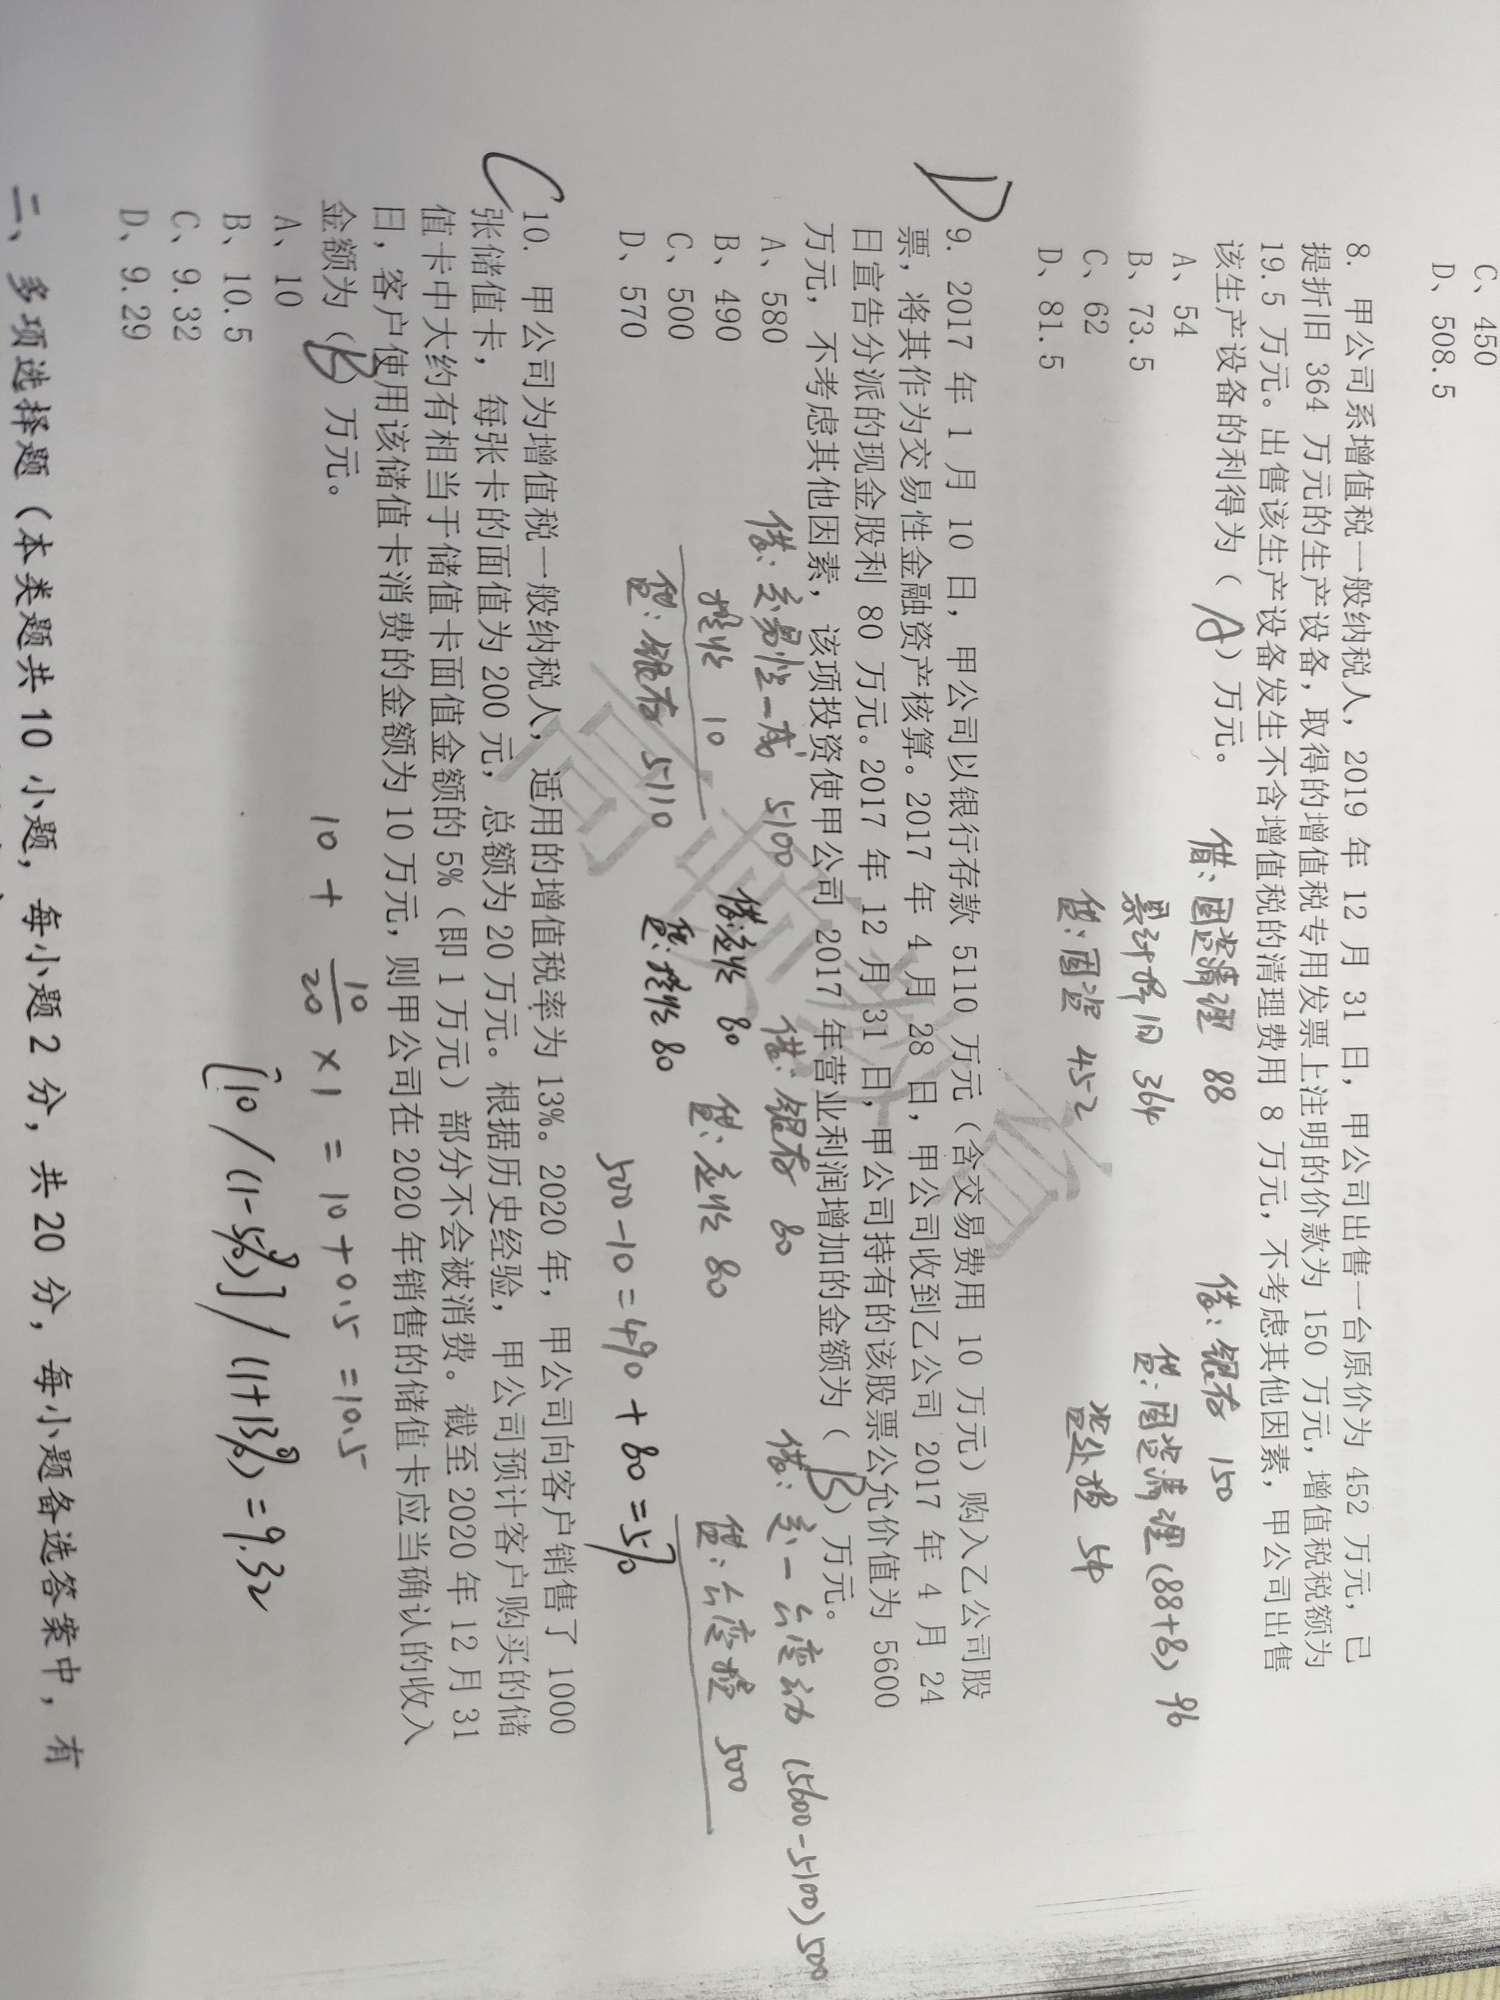 C、450
D、508.5
8. 甲公司系增值税一般纳税人，2019 年 12 月 31 日，甲公司出售一台原价为 452 万元，已
提折旧 364 万元的生产设备，取得的增值税专用发票上注明的价款为 150 万元，增值税税额为
19.5 万元。出售该生产设备发生不含增值税的清理费用 8 万元，不考虑其他因素，甲公司出售
该生产设备的利得为（A）万元。
A、54
B、73.5
C、62
D、81.5
借：固资清理 88
累计折旧 364
贷：固资 452
借：银存 150
贷：固资清理(88+8) 96
资处损 54
D
9. 2017 年 1 月 10 日，甲公司以银行存款 5110 万元（含交易费用 10 万元）购入乙公司股
票，将其作为交易性金融资产核算。2017 年 4 月 28 日，甲公司收到乙公司 2017 年 4 月 24
日宣告分派的现金股利 80 万元。2017 年 12 月 31 日，甲公司持有的该股票公允价值为 5600
万元，不考虑其他因素，该项投资使甲公司 2017 年营业利润增加的金额为（B）万元。
A、580
B、490
C、500
D、570
借：交易性一成 5100
投收 10
贷：银存 5110
借：应收 80
贷：投收 80
借：银存 80
贷：应收 80
借：交一公变动 (5600-5100) 500
贷：公变损 500
500-10=490+80=570
C
10. 甲公司为增值税一般纳税人，适用的增值税率为 13%。2020 年，甲公司向客户销售了 1000
张储值卡，每张卡的面值为 200 元，总额为 20 万元。根据历史经验，甲公司预计客户购买的储
值卡中大约有相当于储值卡面值金额的 5%（即 1 万元）部分不会被消费。截至 2020 年 12 月 31
日，客户使用该储值卡消费的金额为 10 万元，则甲公司在 2020 年销售的储值卡应当确认的收入
金额为（B）万元。
A、10
B、10.5
C、9.32
D、9.29
10 + 10/20 ×1 = 10+0.5 =10.5
[10/(1-5%)]/(1+13%)=9.32
二、多项选择题（本类题共 10 小题，每小题 2 分，共 20 分，每小题备选答案中，有